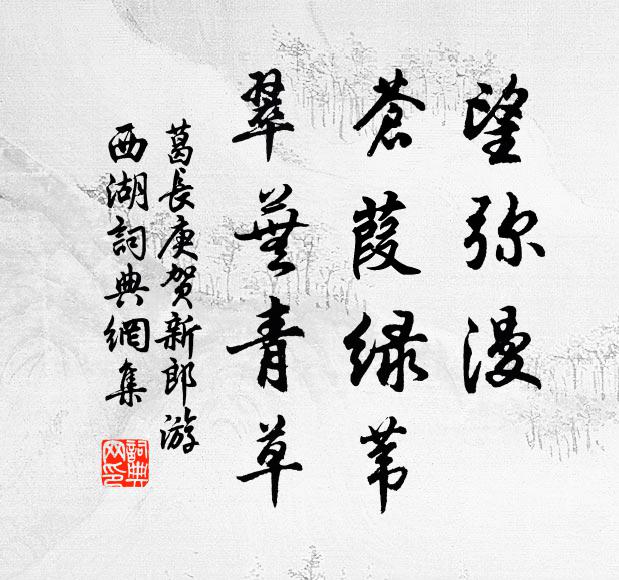 望弥漫
苍葭绿苇
翠芜青草
葛長庚贺新郎游
西湖詞典網集
詞典
网印